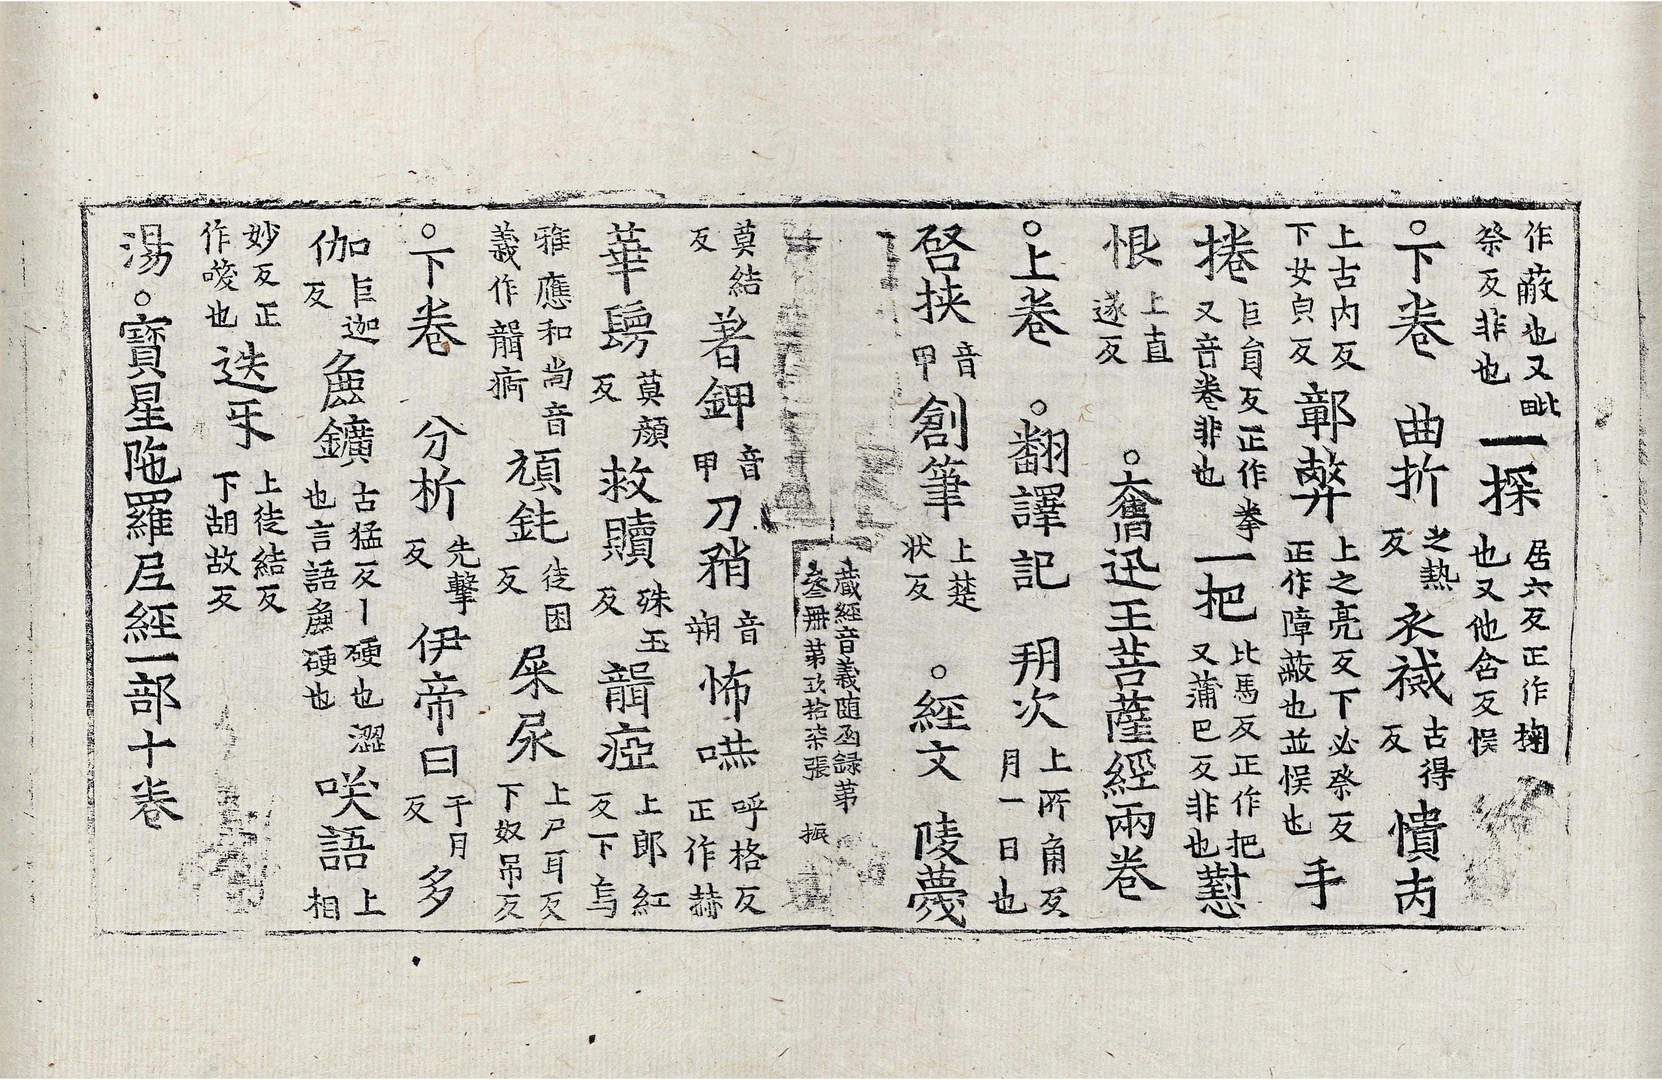 作蔽也又毗祭反非也一探居六反正作掬也又他含反悮
○下卷　曲折之熱反衣裓古得反憒丙
上古內反下女皃反鄣弊上之亮反下必祭反正作障蔽也並悮也手
捲巨貟反正作拳又音卷非也一把比馬反正作把又蒲巴反非也懟
恨上直遂反　○奮迅王菩薩經兩卷
○上卷　○翻譯記　朔次上所角反月一日也
啓挾音甲創筆上楚状反　○經文　陵蔑
莫結反著鉀音甲刀矟音朔怖㘊呼格反正作赫
藏經音義隨函錄第
叁冊第玖拾柒張　振
華鬘莫顔反救贖殊玉反聾瘂上郎紅反下烏
雅應和尚音義作聾㾏頑鈍徒困反屎尿上尸耳反下奴吊反
○下卷　分析先擊反伊帝曰于月反多
伽巨迦反麁鑛古猛反丨硬也澀也言語麁硬也㗛語上相
妙反正作唆也迭互上徒結反下胡故反
湯○寶星陁羅尼經一部十卷